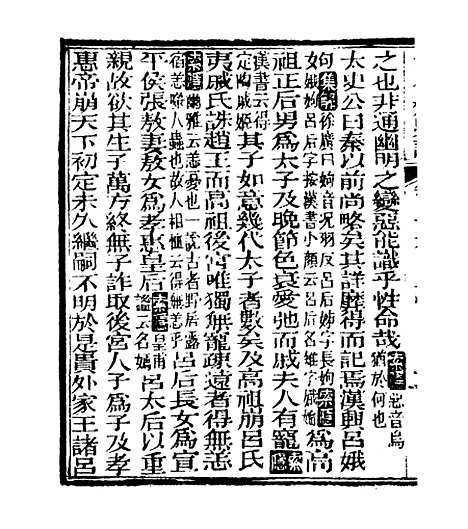 之也非通幽明之變惡能識乎性命哉索隱惡音烏猶於何也
太史公曰秦以前尚略矣其詳靡得而記焉漢興呂娥
姁集解徐廣曰姁音況羽反呂后姊字長姁索隱如娥姁呂后字按漢書小顏云呂后名雉字娥姁爲高
祖正后男爲太子及晚節色衰愛弛而戚夫人有寵索隱
漢書云得定陶戚姬其子如意幾代太子者數矣及高祖崩呂氏
夷戚氏誅趙王而高祖後宮唯獨無寵疎遠者得無恙
索隱爾雅云恙憂也一說古者野居露宿恙噬人蟲也故人相恤云得無恙乎呂后長女爲宣
平侯張敖妻敖女爲孝惠皇后索隱皇甫謐云名嫣呂太后以重
親故欲其生子萬方終無子詐取後宮人子爲子及孝
惠帝崩天下初定未久繼嗣不明於是貴外家王諸呂